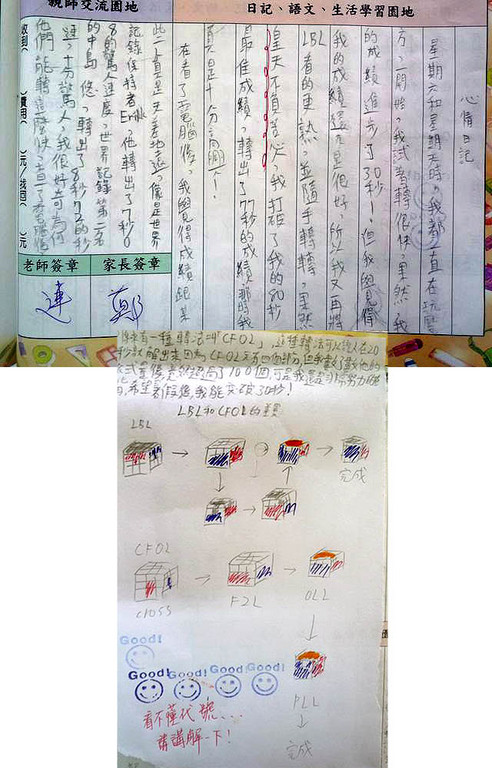 親師交流園地
日記、語文、生活學習園地
心情日記
星期六和星期天時,我都一直在玩魔
方,一開始,我試著轉很快,果然,我
的成績進步了30秒!但我覺得
我的成績還不是很好,所以我又再將
LBL看的更熟,並隨手轉轉,果然
皇天不負苦心,我打破了我的80秒
最佳成績,轉出了77秒的成績,那時我
真是十分高興!
在看了電腦後,我覺得成績跟其
此真是天差地遠,像是世界
記錄保持者Erik,他轉出了7秒0
8的驚人速度,世界記錄第二名
的中島悠,轉出了8秒72的秒
速,十分驚人,我很好奇為何
他們能轉這麼快,查一查
費用
元
找回
元
老師簽章
家長簽章
連
鄭
有一種轉法叫「CFOL」,這種轉法可以讓人在20
秒以解出來,因為CFOL只有四個部分,但我數了數他的
公式,超過了100個,可是我還是十分努力
希望寒假後,我能突破30秒!
LBL和CFOL的
LBL
完成
CFOL
cross
F2L
OLL
PLL
完成
Good!
Good!
Good!
Good!
Good!
看不懂代號...
請講解一下!